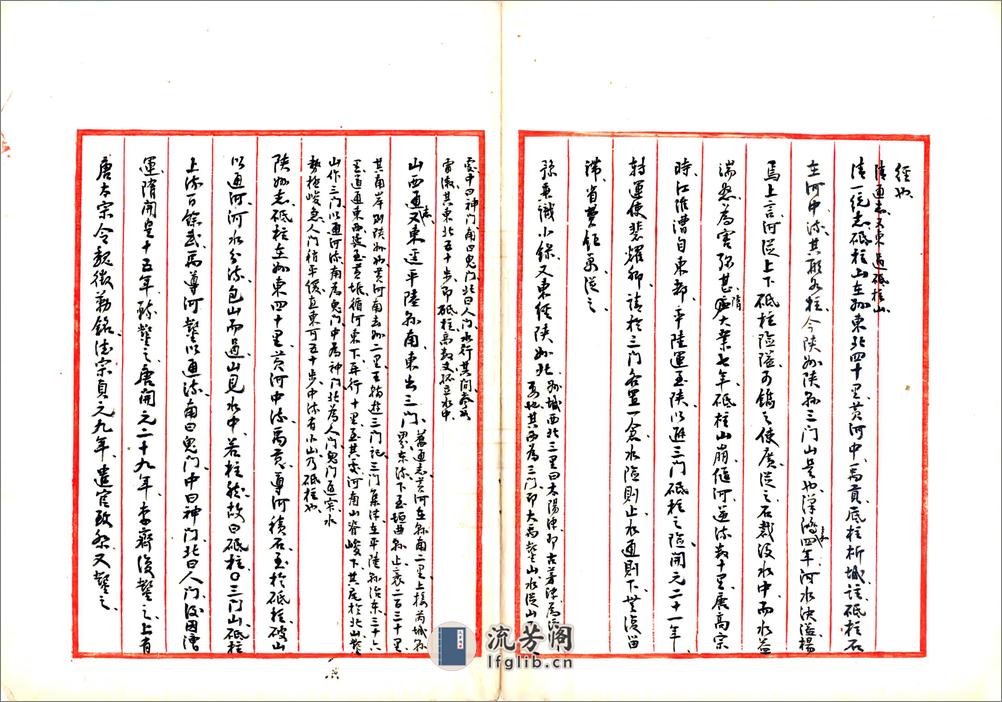 經也
清通志又東過砥柱山
清一統志砥柱山在州東北四十里黃河中禹貢底柱析城註砥柱石
在河中流其形如柱今陝州陝縣三門山是也漢鴻嘉四年河水決溢楊
焉上言河從上下砥柱隘可鐫之使廣從之石裁沒水中而水益
湍怒為害彌甚隋大業七年砥柱山崩偃河逆流數十里唐高宗
時江淮漕自東都平陸運至陝以避三門砥柱之險開元二十一年
轉運使裴耀卿請於三門各置一倉水險則止水通則下無復留
滯省費鉅萬從之
孫兼識小錄又東經陝州北
州城西北三里曰太陽津即古茅津
其西為三門即大禹鑿山水從山
雲中曰神門南曰鬼門北曰人門水行其間
雷激其東北五十步即砥柱高數丈孤立水中
山西通志又東逕平陸縣南東出三門
舊通志黃河在縣南一里上接芮城縣
界東流下至垣曲縣止袤二百三十里
其南岸則陝州黃河南去州二里王翰遊三門記三門集津在平陸縣治東三十六
里循河東下平行十里至其委河南山脊峻下其尾於北山鑿
山作三門以通河流南為鬼門中為神門北為人門鬼門通宗水
勢極峻急人門稍平緩直東可五十步中流有小山乃砥柱也
陝州志砥柱在州東四十里黃河中流禹貢導河積石至於砥柱破山
以通河河水分流包山而過山見水中若柱然故曰砥柱〇三門山砥柱
上流百餘武禹導河鑿以通流南曰鬼門中曰神門北曰人門後因漕
運隋開皇十五年詔鑿之唐開元二十九年李齊復鑿之上有
唐太宗令魏徵勒銘德宗貞元九年遣官致祭又鑿之
流芳阁
lfglib.cn